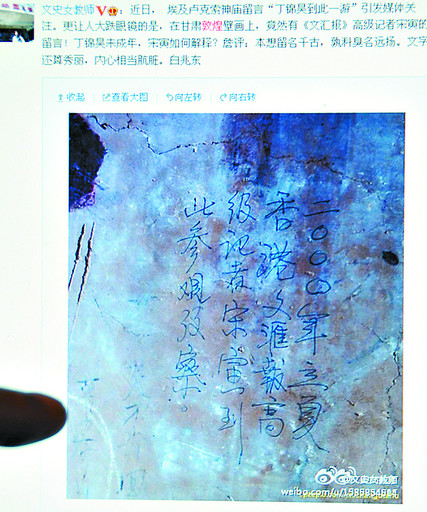 文史女教师V：近日， 埃及卢克索神庙留言“丁锦昊到此一游”引发媒体关
注。更让人大跌眼镜的是，在甘肃敦煌壁画上，竟然有《文汇报》高级记者宋寅的
留言！丁锦昊未成年，宋寅如何解释？詹评：本想留名千古，孰料臭名远扬。文字
还算秀丽，内心相当肮脏。白兆东
收起 查看大图 向左转 向右转
二〇〇〇年立夏
香港文滙報高
级记者宋寅到
此参观攷察。
@文史女教师